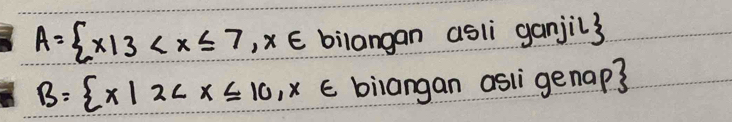 A = {x | 3 < x ≤ 7, x ∈ bilangan asli ganjil}
B = {x | 2 < x ≤ 10, x ∈ bilangan asli genap}